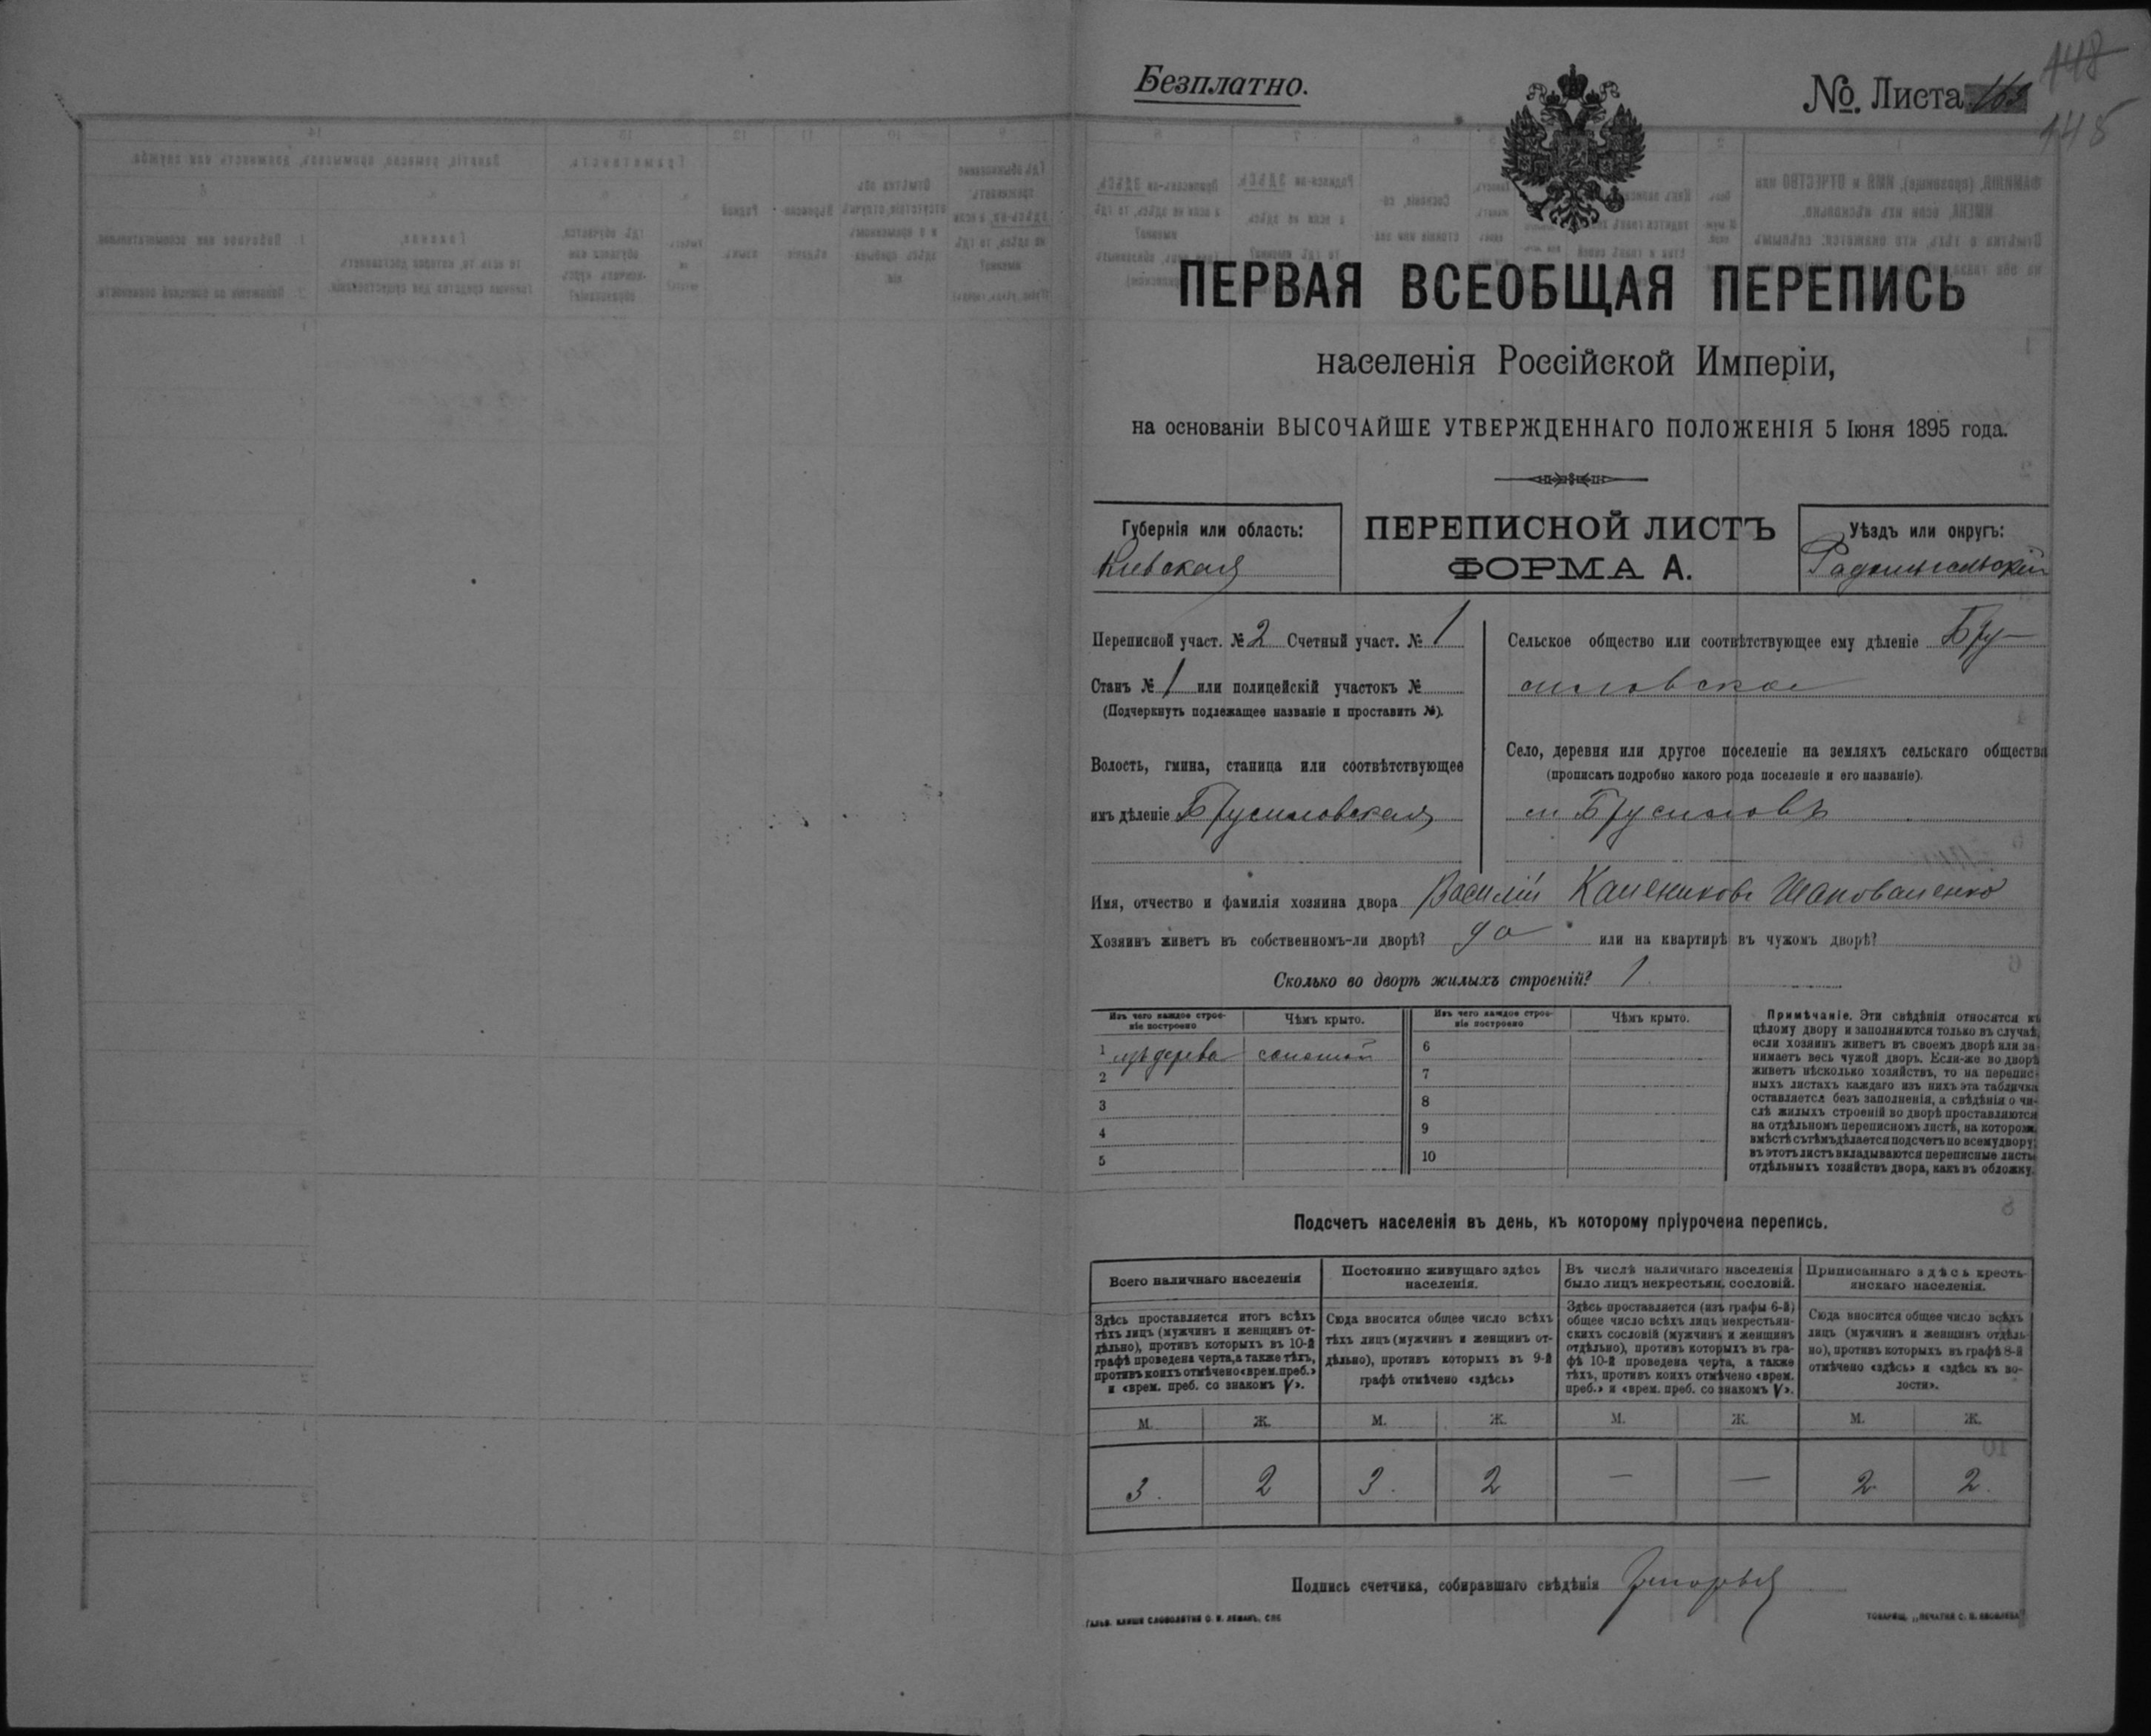 Безплатно.
№. Листа
148
ПЕРВАЯ ВСЕОБЩАЯ ПЕРЕПИСЬ
населенія Россійской Имперіи,
на основаніи ВЫСОЧАЙШЕ УТВЕРЖДЕННАГО ПОЛОЖЕНІЯ 5 Іюня 1895 года.
Губернія или область:
Кіевская
ПЕРЕПИСНОЙ ЛИСТЪ
ФОРМА А.
Уѣздъ или округъ:
Радомысльскій
Переписной участ. № 2 Счетный участ. № 1
Станъ № 1 или полицейскій участокъ №
(Подчеркнуть подлежащее названіе и проставить №).
Волость, гмина, станица или соотвѣтствующее
имъ дѣленіе Брусиловская
Сельское общество или соотвѣтствующее ему дѣленіе Бру-
силовское
Село, деревня или другое поселеніе на земляхъ сельскаго общества
(прописать подробно какого рода поселеніе и его названіе).
м Брусиловъ
Имя, отчество и фамилія хозяина двора Василій Шаповаленко
Хозяинъ живетъ въ собственномъ-ли дворѣ? да или на квартирѣ въ чужомъ дворѣ?
Сколько во дворѣ жилыхъ строеній? 1
Изъ чего каждое строе-
ніе построено
Чѣмъ крыто.
Изъ чего каждое строе-
ніе построено
Чѣмъ крыто.
1 изъ дерева соломой 6
2 7
3 8
4 9
5 10
Примѣчаніе. Эти свѣдѣнія относятся къ
цѣлому двору и заполняются только въ случаѣ,
если хозяинъ живетъ въ своемъ дворѣ или за-
нимаетъ весь чужой дворъ. Если-же во дворѣ
живетъ нѣсколько хозяйствъ, то на перепис-
ныхъ листахъ каждаго изъ нихъ эта табличка
оставляется безъ заполненія, а свѣдѣнія о чи-
слѣ жилыхъ строеній во дворѣ проставляются
на отдѣльномъ переписномъ листѣ, на которомъ
вмѣстѣ съ тѣмъ дѣлается подсчетъ по всему двору;
въ этотъ листъ вкладываются переписные листы
отдѣльныхъ хозяйствъ двора, какъ въ обложку.
Подсчетъ населенія въ день, къ которому пріурочена перепись.
Всего наличнаго населенія
Здѣсь проставляется итогъ всѣхъ
тѣхъ лицъ (мужчинъ и женщинъ от-
дѣльно), противъ которыхъ въ 10-й
графѣ проведена черта, а также тѣхъ,
противъ коихъ отмѣчено «врем. преб.»
и «врем. преб. со знакомъ V».
Постоянно живущаго здѣсь
населенія.
Сюда вносится общее число всѣхъ
тѣхъ лицъ (мужчинъ и женщинъ от-
дѣльно), противъ которыхъ въ 9-й
графѣ отмѣчено «здѣсь»
Въ числѣ наличнаго населенія
было лицъ некрестьян. сословій.
Здѣсь проставляется (изъ графы 6-й)
общее число всѣхъ лицъ некрестьян-
скихъ сословій (мужчинъ и женщинъ
отдѣльно), противъ которыхъ въ гра-
фѣ 10-й проведена черта, а также
тѣхъ, противъ коихъ отмѣчено «врем.
преб.» и «врем. преб. со знакомъ V».
Приписаннаго здѣсь кресть-
янскаго населенія.
Сюда вносится общее число всѣхъ
лицъ (мужчинъ и женщинъ отдѣль-
но), противъ которыхъ въ графѣ 8-й
отмѣчено «здѣсь» и «здѣсь къ во-
лости».
М. Ж. М. Ж. М. Ж. М. Ж.
3. 2 3. 2 — — 2 2.
Подпись счетчика, собиравшаго свѣдѣнія
ГАЛЬВ. КЛИШЕ СЛОВОЛИТНИ О. И. ЛЕМАНЪ, СПБ
ТОВАРИЩ. „ПЕЧАТНЯ С. П. ЯКОВЛЕВА"